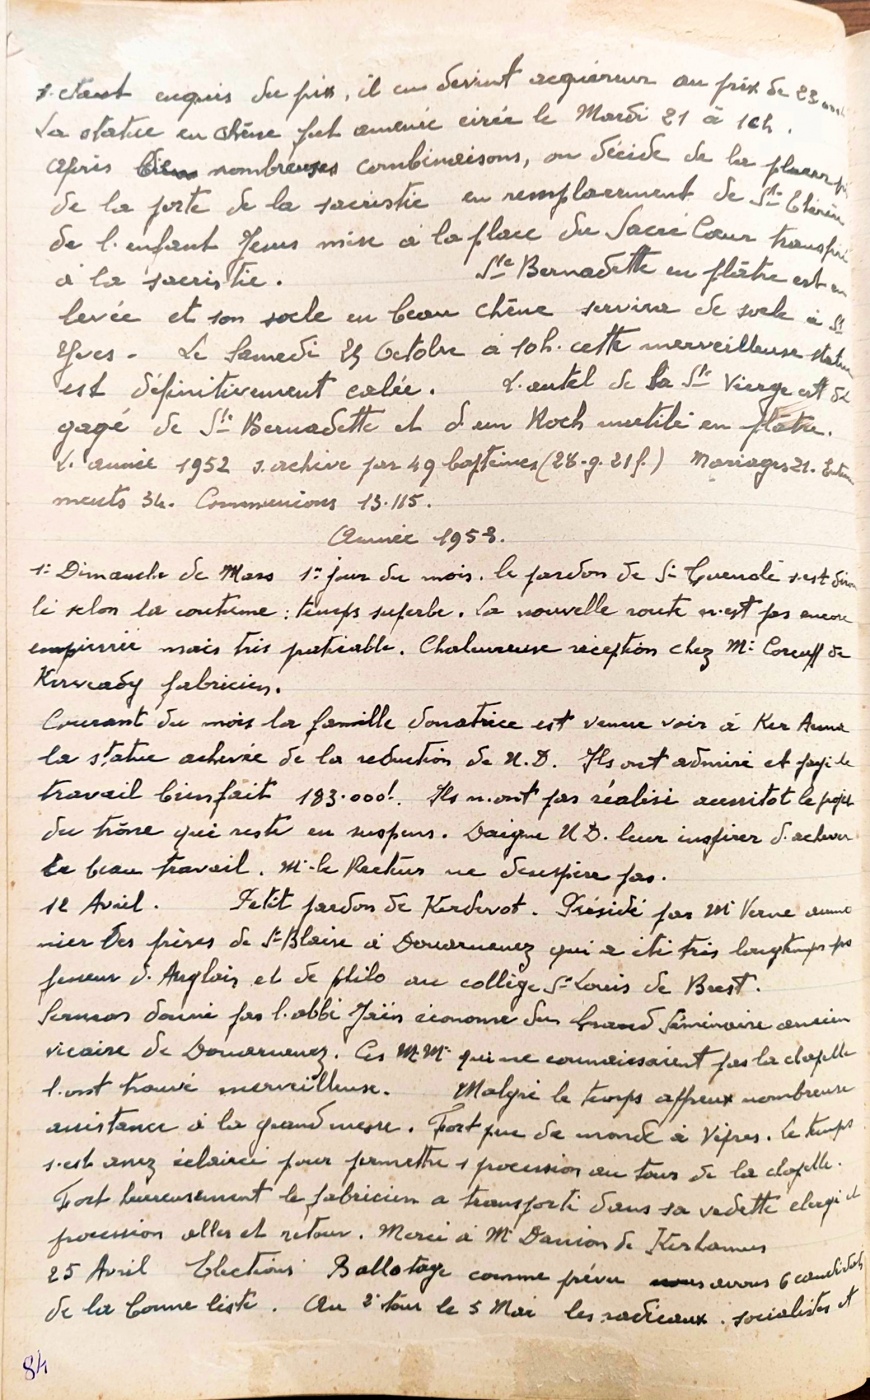 s'étant enquis du prix, il en devint acquéreur au prix de 23
La statue en chêne fut amenée cirée le Mardi 21 à 16h.
Après nombreuses combinaisons, on décide de la placer
de la porte de la sacristie en remplacement de Ste Thérèse
de l'enfant Jésus mise à la place du Sacré Cœur transféré
à la sacristie. Ste Bernadette en plâtre est en
levée et son socle en beau chêne servira de socle à St
Yves - Le Samedi 25 Octobre à 10h. cette merveilleuse statue
est définitivement calée. L'autel de la Ste Vierge est dé
gagé de Ste Bernadette et d'un Roch mutilé en plâtre.
L'année 1952 s'achève par 49 baptêmes (28.g. 21f.) Mariages 21. Enterre
ments 34. Communions 13.115.
Année 1953.
1er Dimanche de Mars 1er jour du mois. le pardon de St Guénolé s'est dérou
lé selon la coutume : temps superbe. La nouvelle route n'est pas encore
empierrée mais très praticable. Chaleureuse réception chez Mr Coreuff de
Kerveady fabricien.
Courant du mois la famille donatrice est venue voir à Ker Anna
la statue achevée de la réduction de N.D. Ils ont admiré et payé le
travail bien fait 183.000f. Ils n'ont pas réalisé aussitôt le projet
du trône qui reste en suspens. Daigne N.D. leur inspirer d'achever
ce beau travail. Mr le Recteur ne désespère pas.
12 Avril. Petit pardon de Kerdévot. Présidé par Mr Verne aumo
nier des frères de St Blaise à Douarnenez qui a été très longtemps pro
fesseur d'Anglais et de philo au collège St Louis de Brest.
Sermon donné par l'abbé Jaïn économe du Grand Séminaire ancien
vicaire de Douarnenez. Ces MMrs qui ne connaissaient pas la chapelle
l'ont trouvé merveilleuse. Malgré le temps affreux nombreuse
assistance à la grand messe. Fort peu de monde à Vêpres. Le temps
s'est assez éclairci pour permettre 1 procession au tour de la chapelle.
Fort heureusement le fabricien a transporté dans sa vedette clergé et
procession aller et retour. Merci à Mr Danion de
25 Avril Elections Ballotage comme prévu nous avons 6 candidats
de la bonne liste. Au 2e tour le 5 Mai les radicaux-socialistes et
84